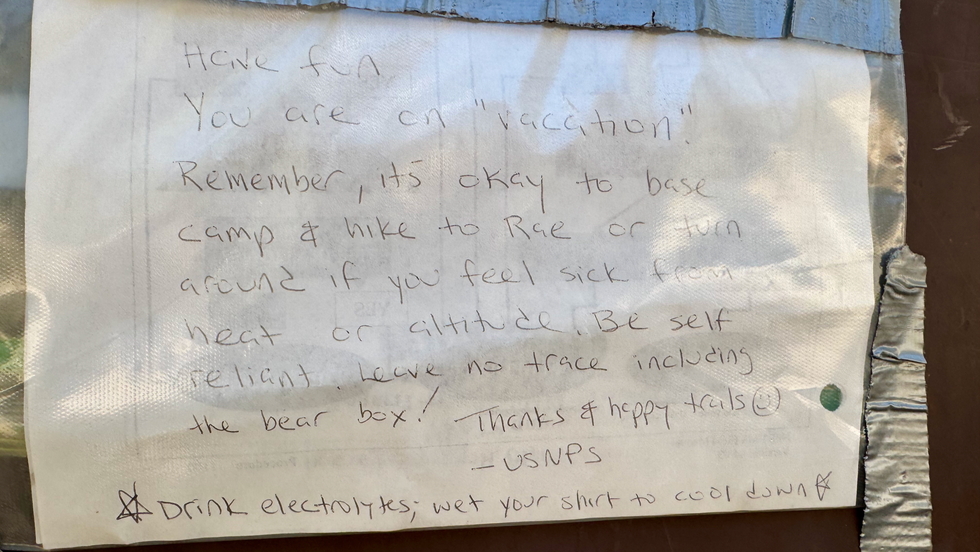 Have fun
You are on "vacation".
Remember, it's okay to base
camp & hike to Rae or turn
around if you feel sick from
heat or altitude. Be self
reliant. Leave no trace including
the bear box! Thanks & happy trails ☺
- USNPS
☆ Drink electrolytes; wet your shirt to cool down ☆